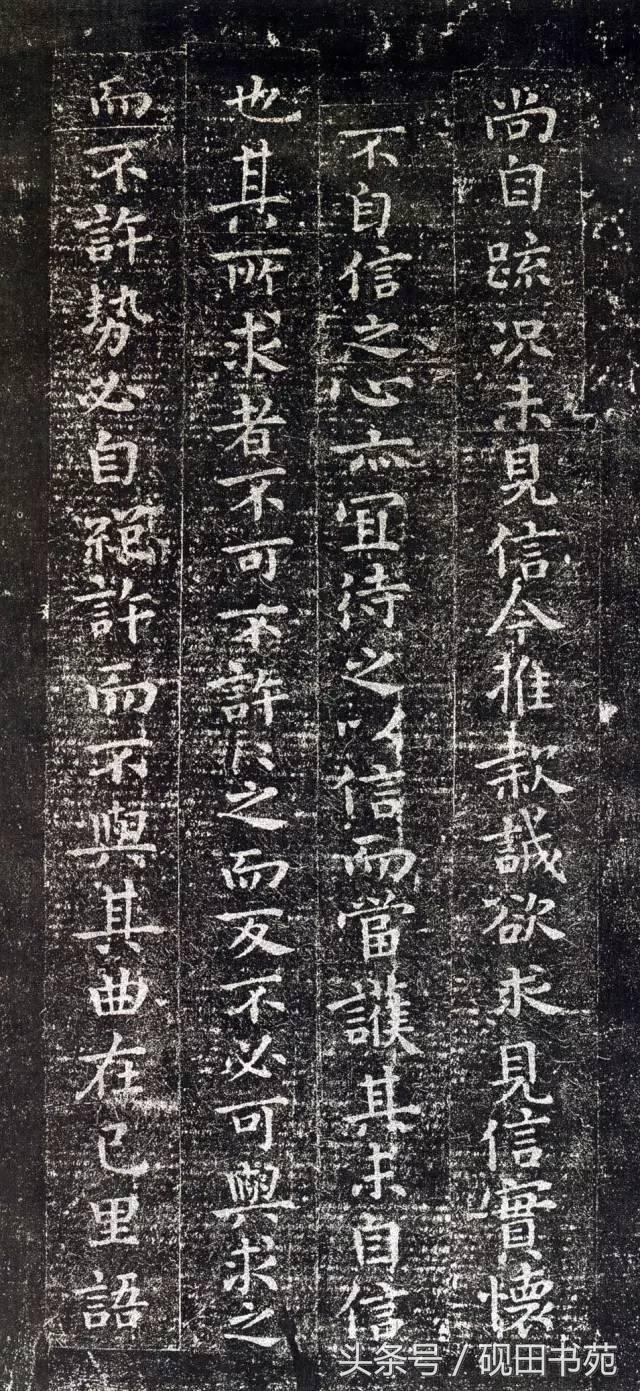 尚自踈况未見信今推款誠欲求見信實懷
不自信之心亦宜待之以信而當護其未自信
也其所求者不可不許〻之而反不必可與求之
而不許勢必自絕許而不與其曲在己里語
头条号 / 砚田书苑